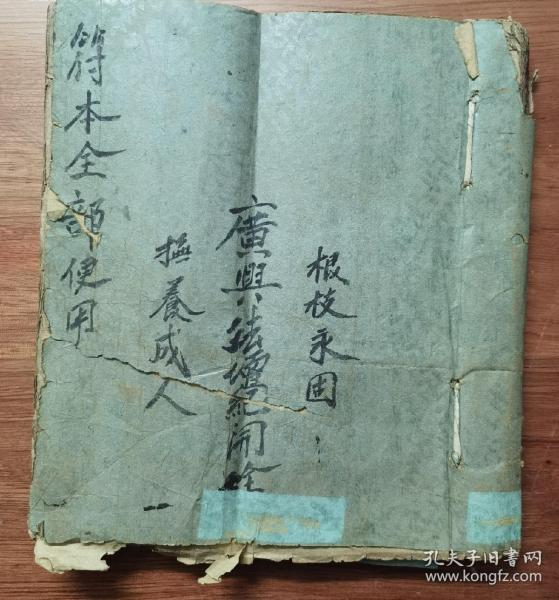 根枝永固
廣興法壇
撫養成人
符本全部使用
孔夫子旧书网
book.kongfz.com